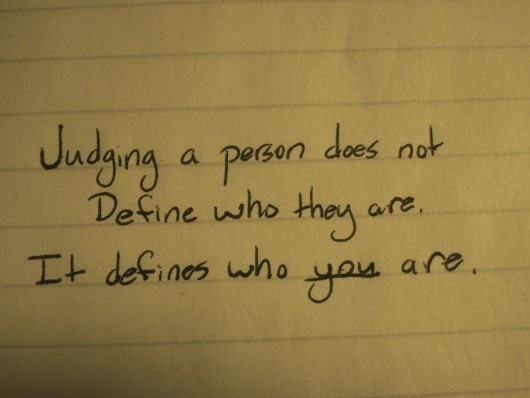 Judging a person does not
Define who they are.
It defines who you are.